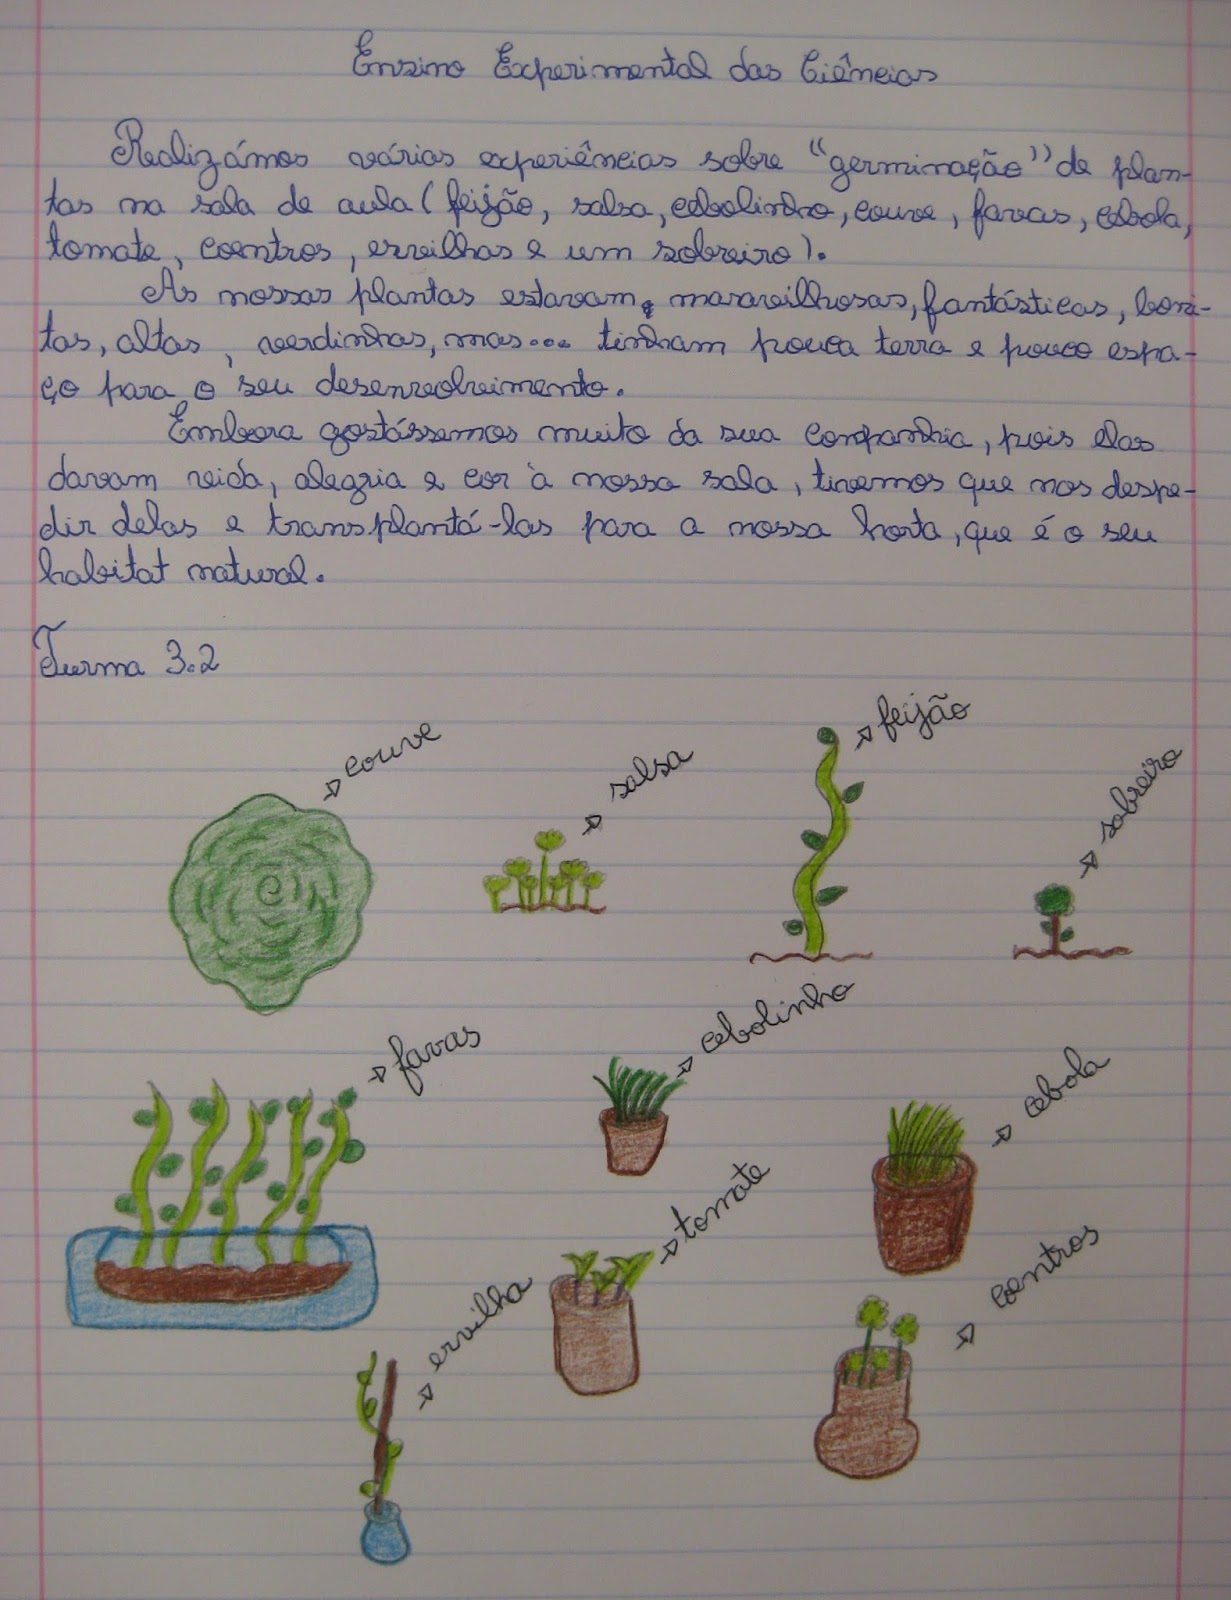 Ensino Experimental das Ciências
Realizámos várias experiências sobre "germinação" de plan-
tas na sala de aula (feijão, salsa, cebolinho, couve, favas, cebola,
tomate, coentros, ervilhas e um sobreiro).
As nossas plantas estavam, maravilhosas, fantásticas, boni-
tas, altas, verdinhas, mas... tinham pouca terra e pouco espa-
ço para o seu desenvolvimento.
Embora gostássemos muito da sua companhia, pois elas
davam vida, alegria e cor à nossa sala, tivemos que nos despe-
dir delas e transplantá-las para a nossa horta, que é o seu
habitat natural.
Turma 3.2
couve
salsa
feijão
sobreiro
favas
cebolinho
cebola
tomate
ervilha
coentros